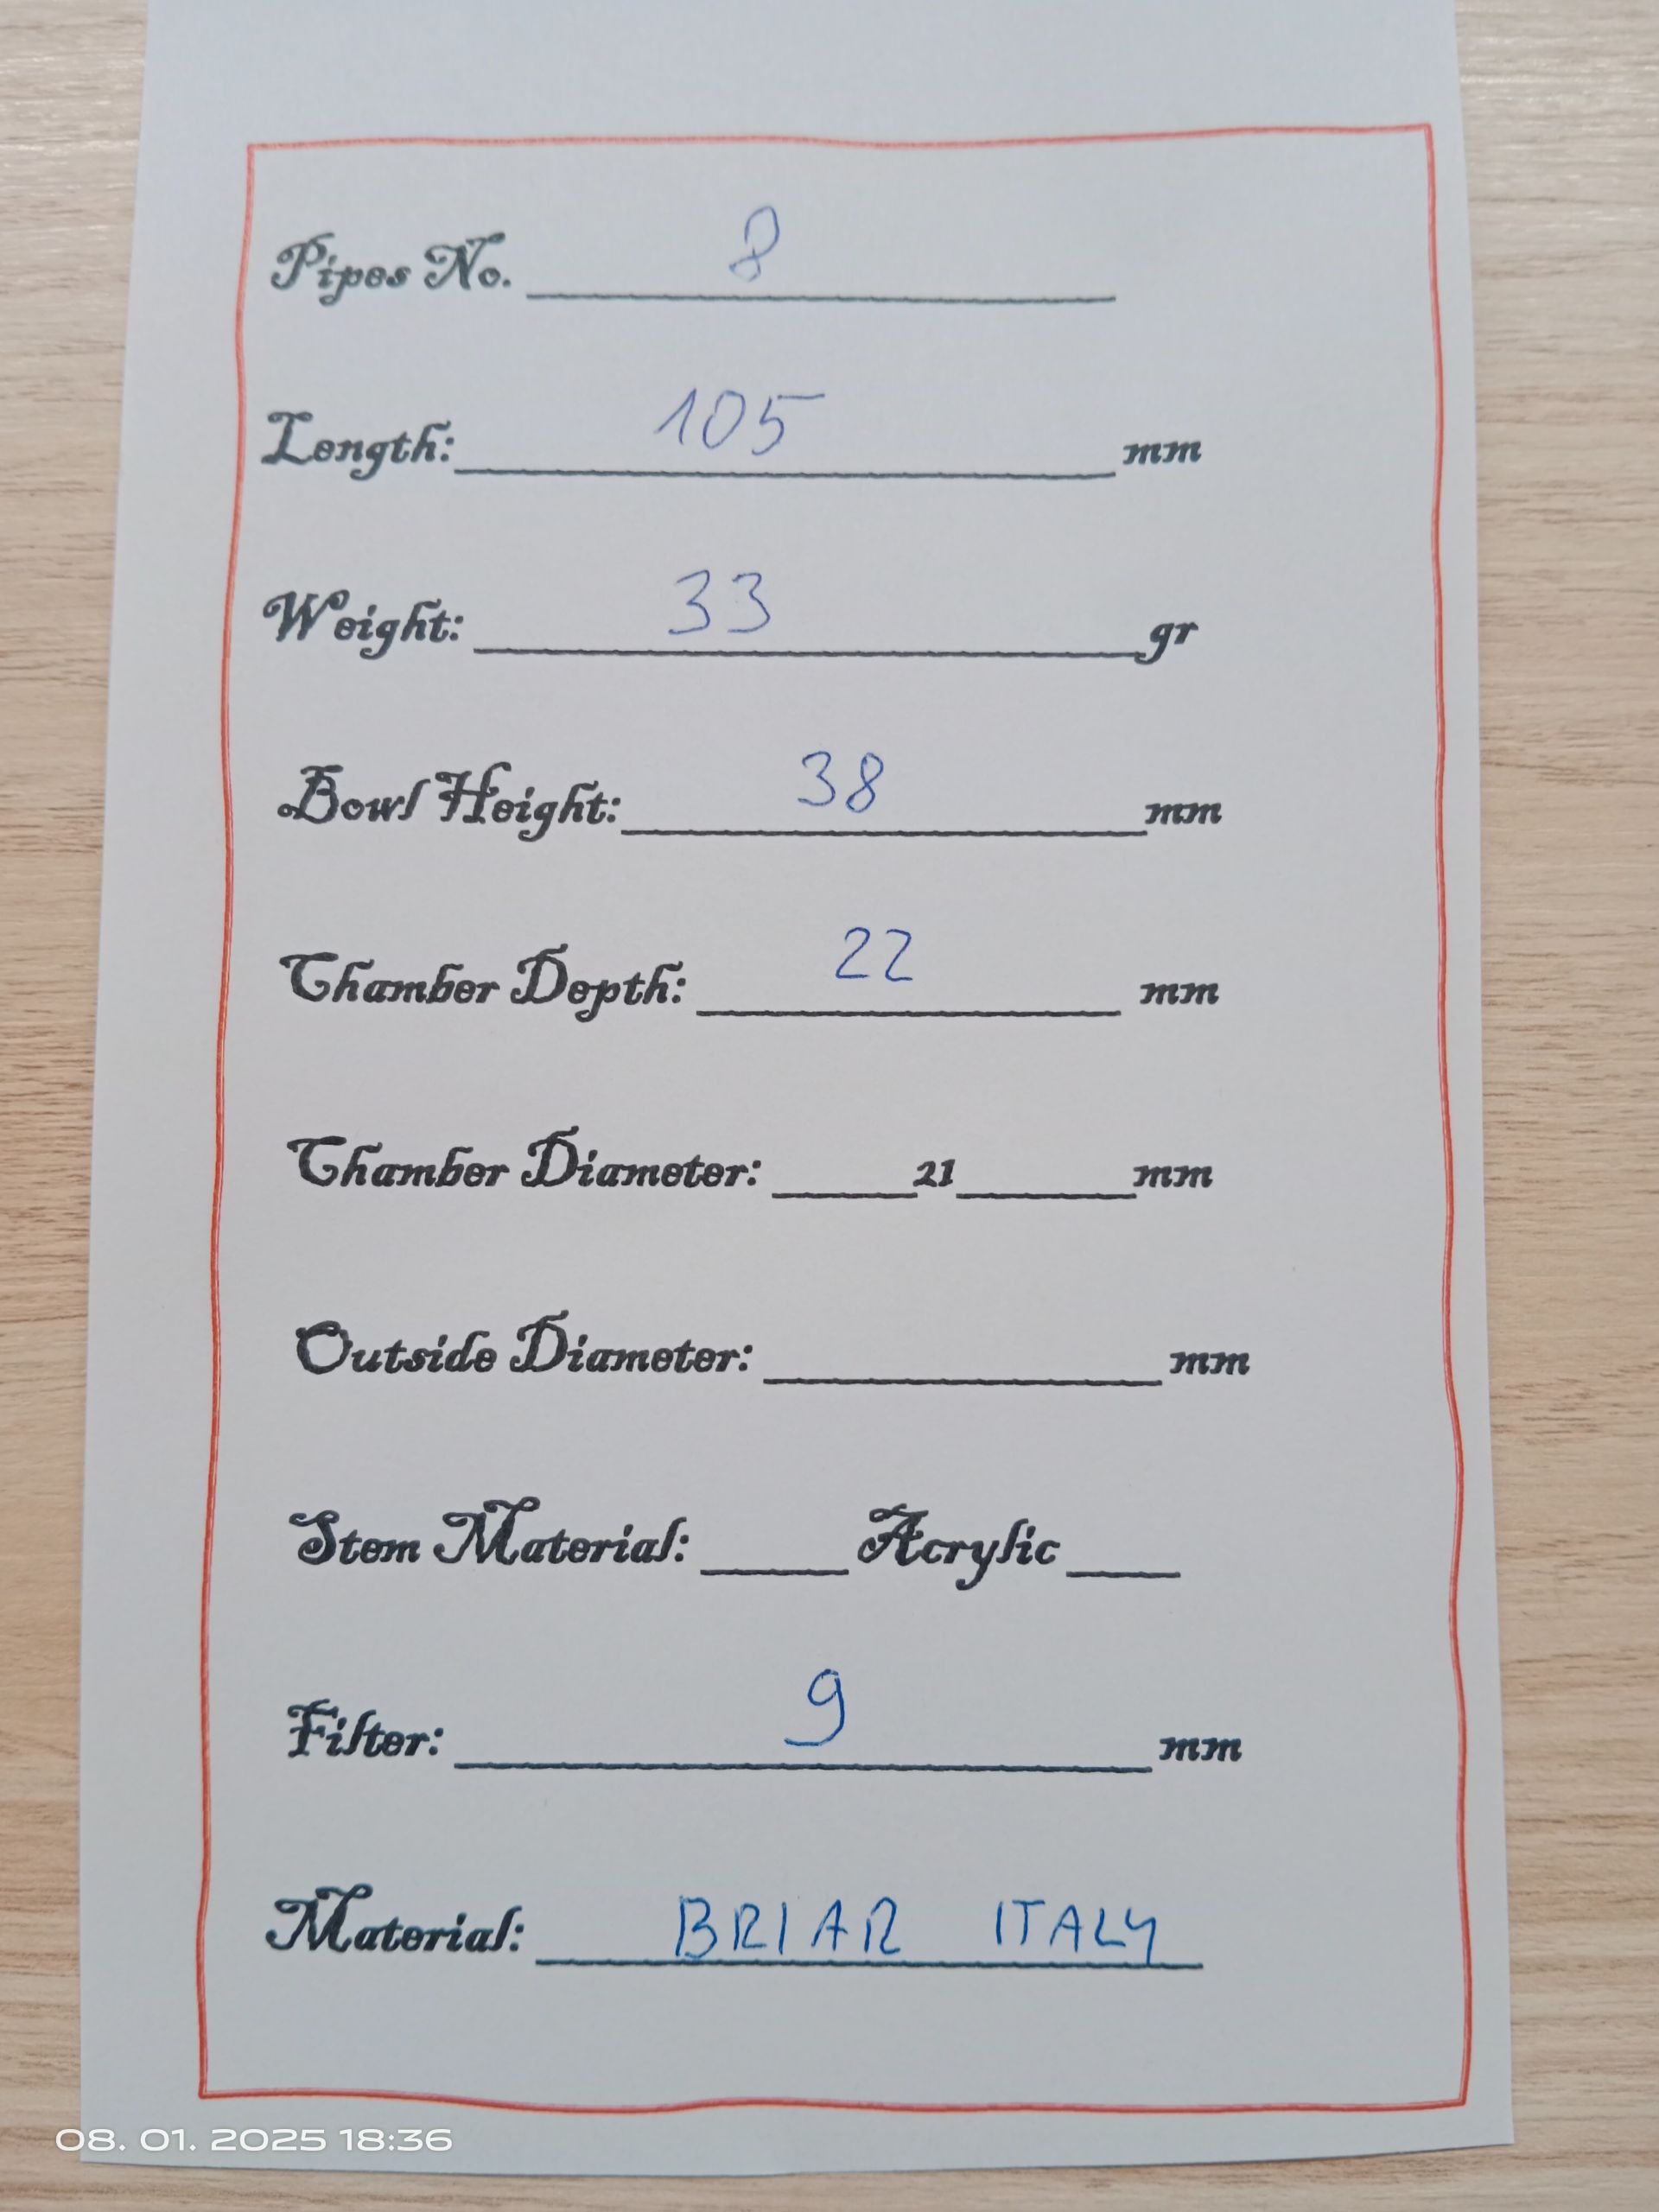 Pipes No. 8
Length: 105 mm
Weight: 33 gr
Bowl Height: 38 mm
Chamber Depth: 22 mm
Chamber Diameter: 21 mm
Outside Diameter: mm
Stem Material: Acrylic
Filter: 9 mm
Material: BRIAR ITALY
08. 01. 2025 18:36